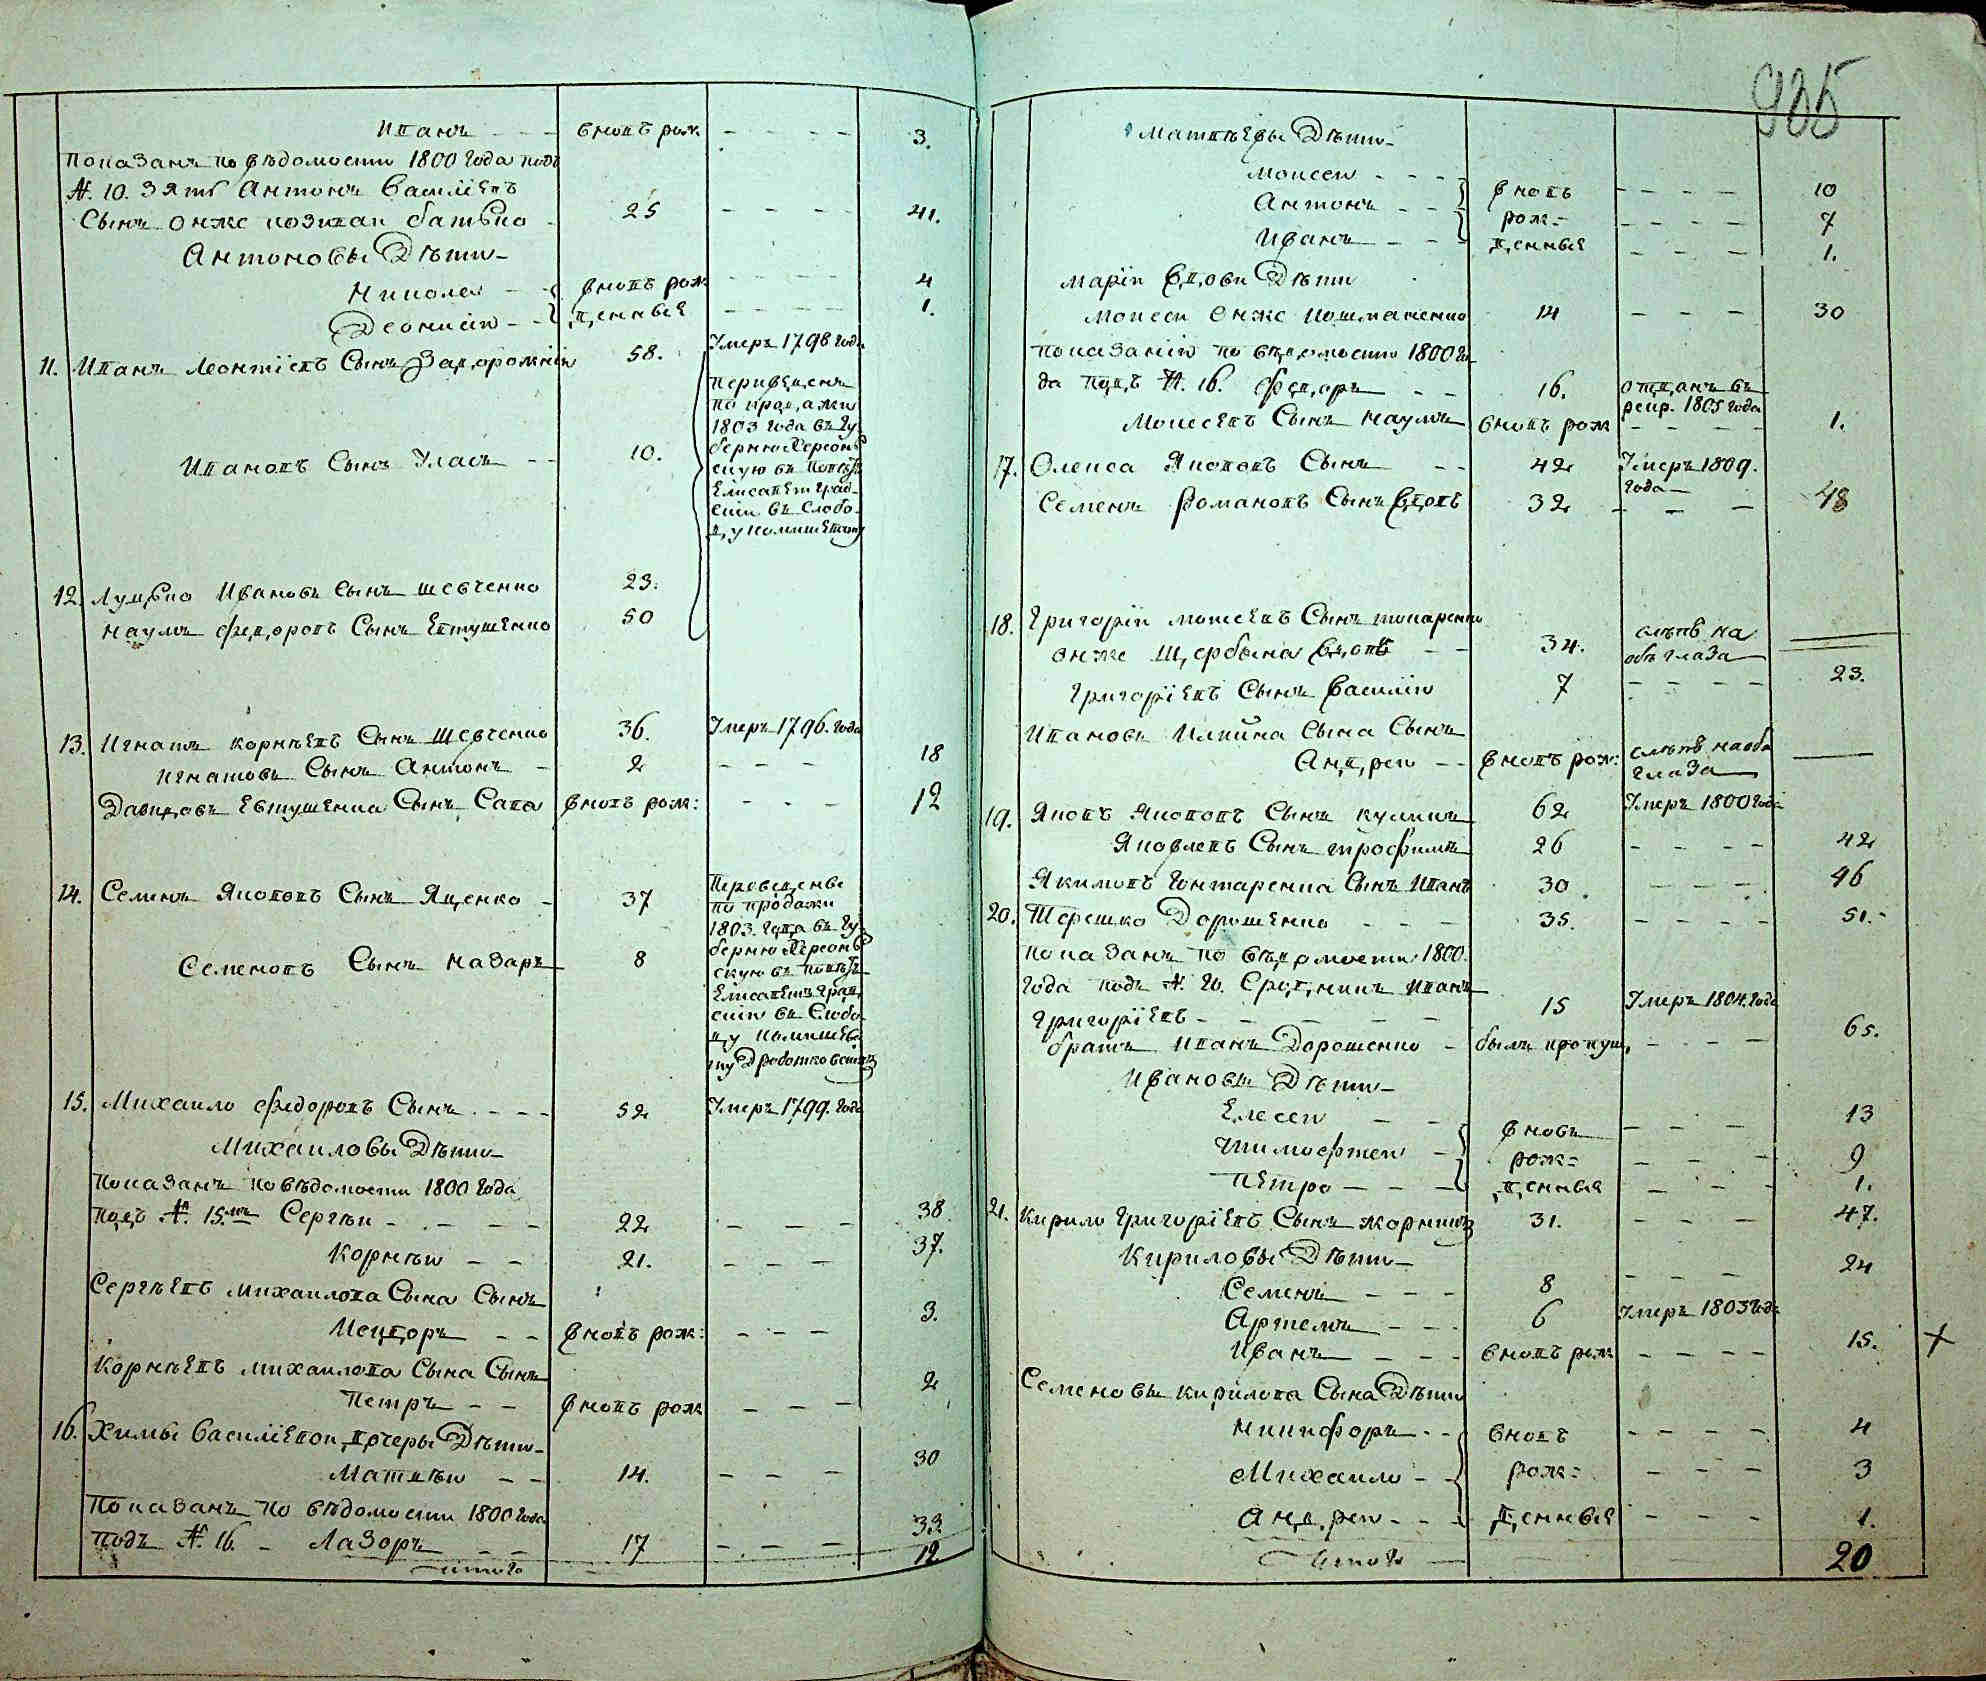 Иванъ - - - вновь рож - - - - 3.
показанъ по вѣдомости 1800 года подъ
№ 10. Зять Антонъ Василіевъ
Сынъ онже 25 - - - 41.
Антоновы Дѣти
Николай - - вновь рож - - - - 4
Деонисій - - денныя - - - - 1.
11. Иванъ Леонтіевъ Сынъ Задорожній 58. Умеръ 1798 года
Ивановъ Сынъ Уласъ - - 10.
переведенъ
по продажи
1803 года въ гу
бернію Херсонъ
скую въ повѣтъ
Елисаветград-
скій въ слобо-
ду
12. Луцько Ивановъ Сынъ Шевченко 23.
Наумъ Федоровъ Сынъ Евтушенко 50
13. Игнатъ Корнѣевъ Сынъ Шевченко 36. Умеръ 1796. года
Игнатовъ Сынъ Антонъ - 2 - - - 18
Давидовъ Евтушенка Сынъ Сава вновь рож: - - - 12
14. Семенъ Якововъ Сынъ Яценко - 37
Семеновъ Сынъ Назаръ 8
Переведенъ
по продажи
1803. года въ гу
бернію Херсонъ
скую въ повѣтъ
Елисаветград
скій въ Слобо
ду
15. Михайло Федоровъ Сынъ - - - 52 Умеръ 1799. года
Михайловы Дѣти
Показанъ по вѣдомости 1800 года
подъ № 15мъ Сергѣй - - - - 22 - - - 38
Корнѣй - - 21. - - - 37.
Сергѣевъ Михайлова Сына Сынъ
- - вновь рож: - - - 3.
Корнѣевъ Михайлова Сына Сынъ
Петръ - - вновь рож - - - 2
16. Химы Василіевой дочеры Дѣти
Матвѣй - - 14. - - - 30
Показанъ по вѣдомости 1800 года
подъ № 16 - Лазоръ - - 17 - - - 33.
итого 12
935
Матвѣевы Дѣти
Моисей - - - вновь - - - - 10
Антонъ - - рож= - - - - 7
Иванъ - - денныя - - - 1.
Маріи вдовы Дѣти
Моисей онже 14 - - - 30
показаній по вѣдомости 1800 го
да подъ № 16. Федоръ - - 16. отданъ въ
рекр. 1805 года
Моисеевъ Сынъ Наумъ вновь рож - - - - 1.
17. Олекса Якововъ Сынъ - - 42 Умеръ 1809.
года
Семенъ Романовъ Сынъ Вдовъ 32 - - - 48
18. Григорій Моисеевъ Сынъ Токаренко
онже Щербына вдовъ - - 34. слѣпъ на
обѣ глаза
Григоріевъ Сынъ Василій 7 - - - - 23.
Ивановъ Илкина Сына Сынъ
Андрей - - вновь рож: слѣпъ на оба
глаза
19. Яковъ Якововъ Сынъ Куликъ 62 Умеръ 1800 года
Яковлевъ Сынъ Трофимъ 26 - - - - 42
Якимовъ Гонтаренка Сынъ Иванъ 30 - - - 46
20. Терешко Дорошенко - - - 35. - - - - 51.
показанъ по вѣдомости 1800.
года подъ № 20. Сродникъ Иванъ
Григоріевъ - - - - - 15 Умеръ 1804. года
братъ Иванъ Дорошенко - былъ пропущ, - - - - 65.
Ивановы Дѣти
Елесей - - вновь - - - 13
Тимофтей - рож= - - - 9
Петро - - - денныя - - - 1.
21. Кирило Григоріевъ Сынъ 31. - - - 47.
Кириловы Дѣти
Семенъ - - - 8 - - - 24
Артемъ - - - 6 Умеръ 1803 года
Иванъ - - - вновь рож - - - - 15. +
Семеновы Кирилова Сына Дѣти
Никифоръ - - вновь - - - - 4
Михайло - - рож= - - - 3
Андрей - - - денныя - - - 1.
Итого 20